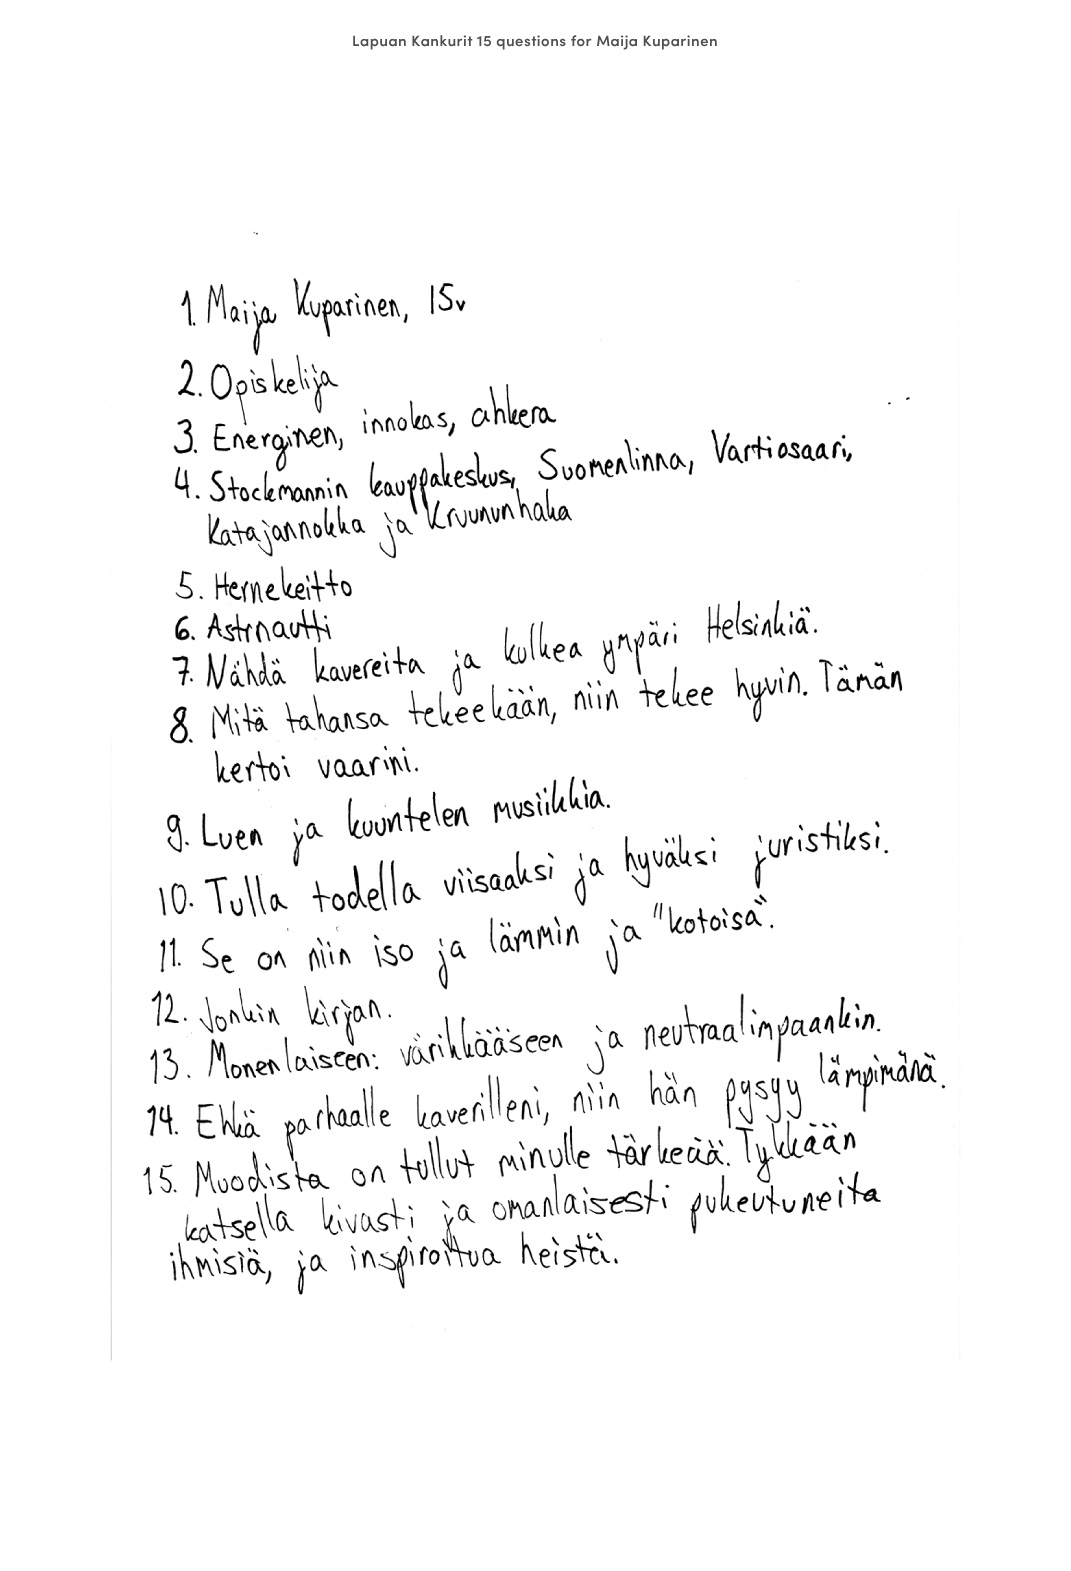 Lapuan Kankurit 15 questions for Maija Kuparinen
1. Maija Kuparinen, 15v
2. Opiskelija
3. Energinen, innokas, ahkera
4. Stockmannin kauppakeskus, Suomenlinna, Vartiosaari,
Katajannokka ja Kruununhaka
5. Hernekeitto
6. Astrnautti
7. Nähdä kavereita ja kulkea ympäri Helsinkiä.
8. Mitä tahansa tekeekään, niin tekee hyvin. Tämän
kertoi vaarini.
9. Luen ja kuuntelen musiikkia.
10. Tulla todella viisaaksi ja hyväksi juristiksi.
11. Se on niin iso ja lämmin ja "kotoisa".
12. Jonkin kirjan.
13. Monenlaiseen: värikkääseen ja neutraalimpaankin.
14. Ehkä parhaalle kaverilleni, niin hän pysyy lämpimänä.
15. Muodista on tullut minulle tärkeää. Tykkään
katsella kivasti ja omanlaisesti pukeutuneita
ihmisiä, ja inspiroitua heistä.